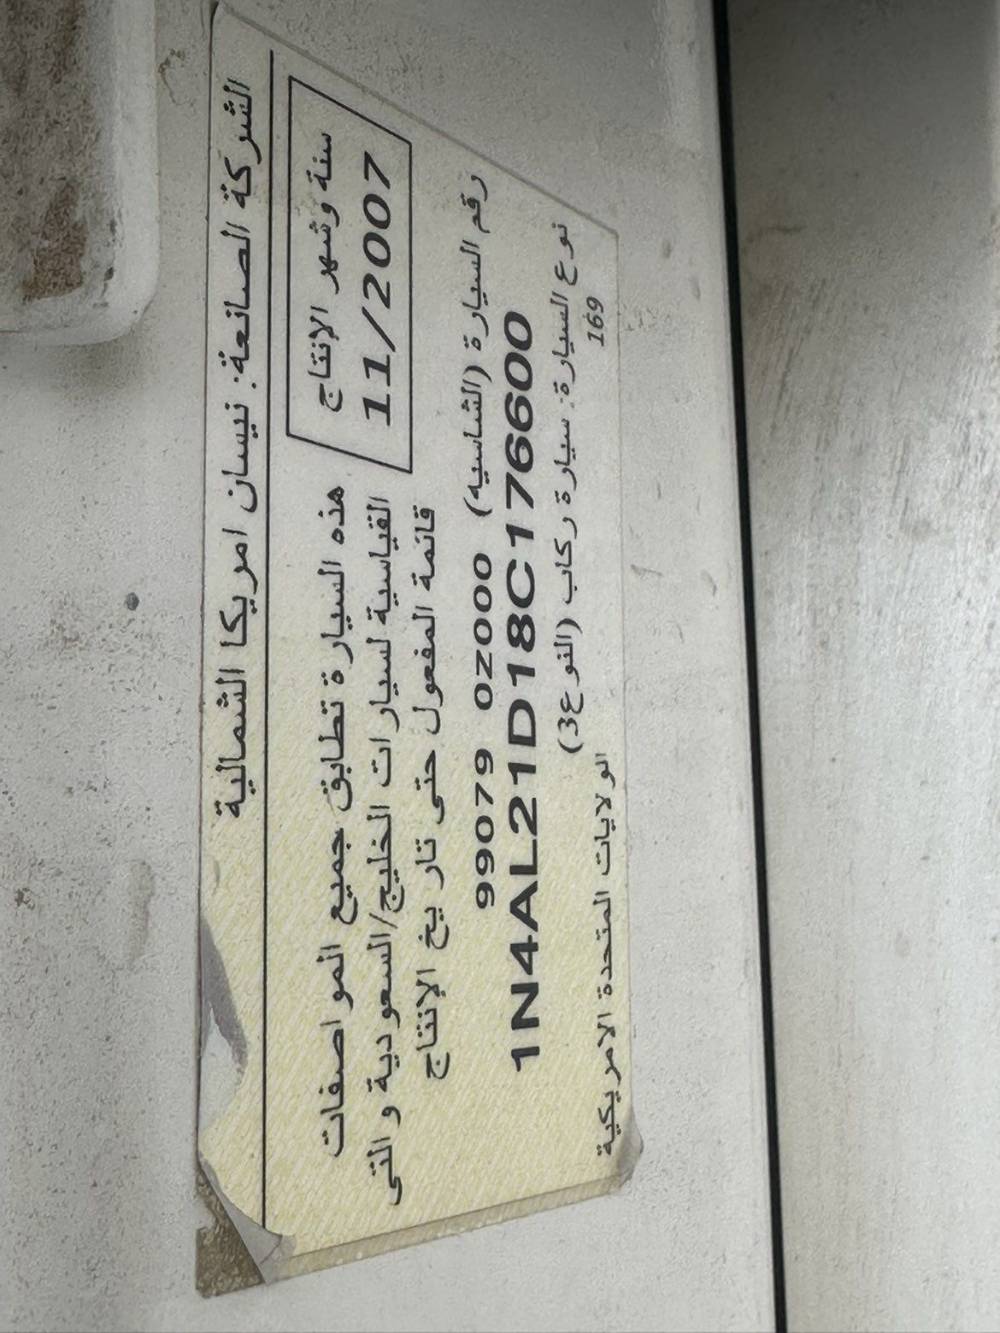 الشركة الصانعة: نيسان امريكا الشمالية
سنة وشهر الإنتاج
11/2007
هذه السيارة تطابق جميع المواصفات
القياسية لسيارات الخليج/السعودية والتى
قائمة المفعول حتى تاريخ الإنتاج
رقم السيارة (الشاسيه) 99079 0Z000
1N4AL21D18C176600
نوع السيارة: سيارة ركاب (النوع3)
169
الولايات المتحدة الامريكية